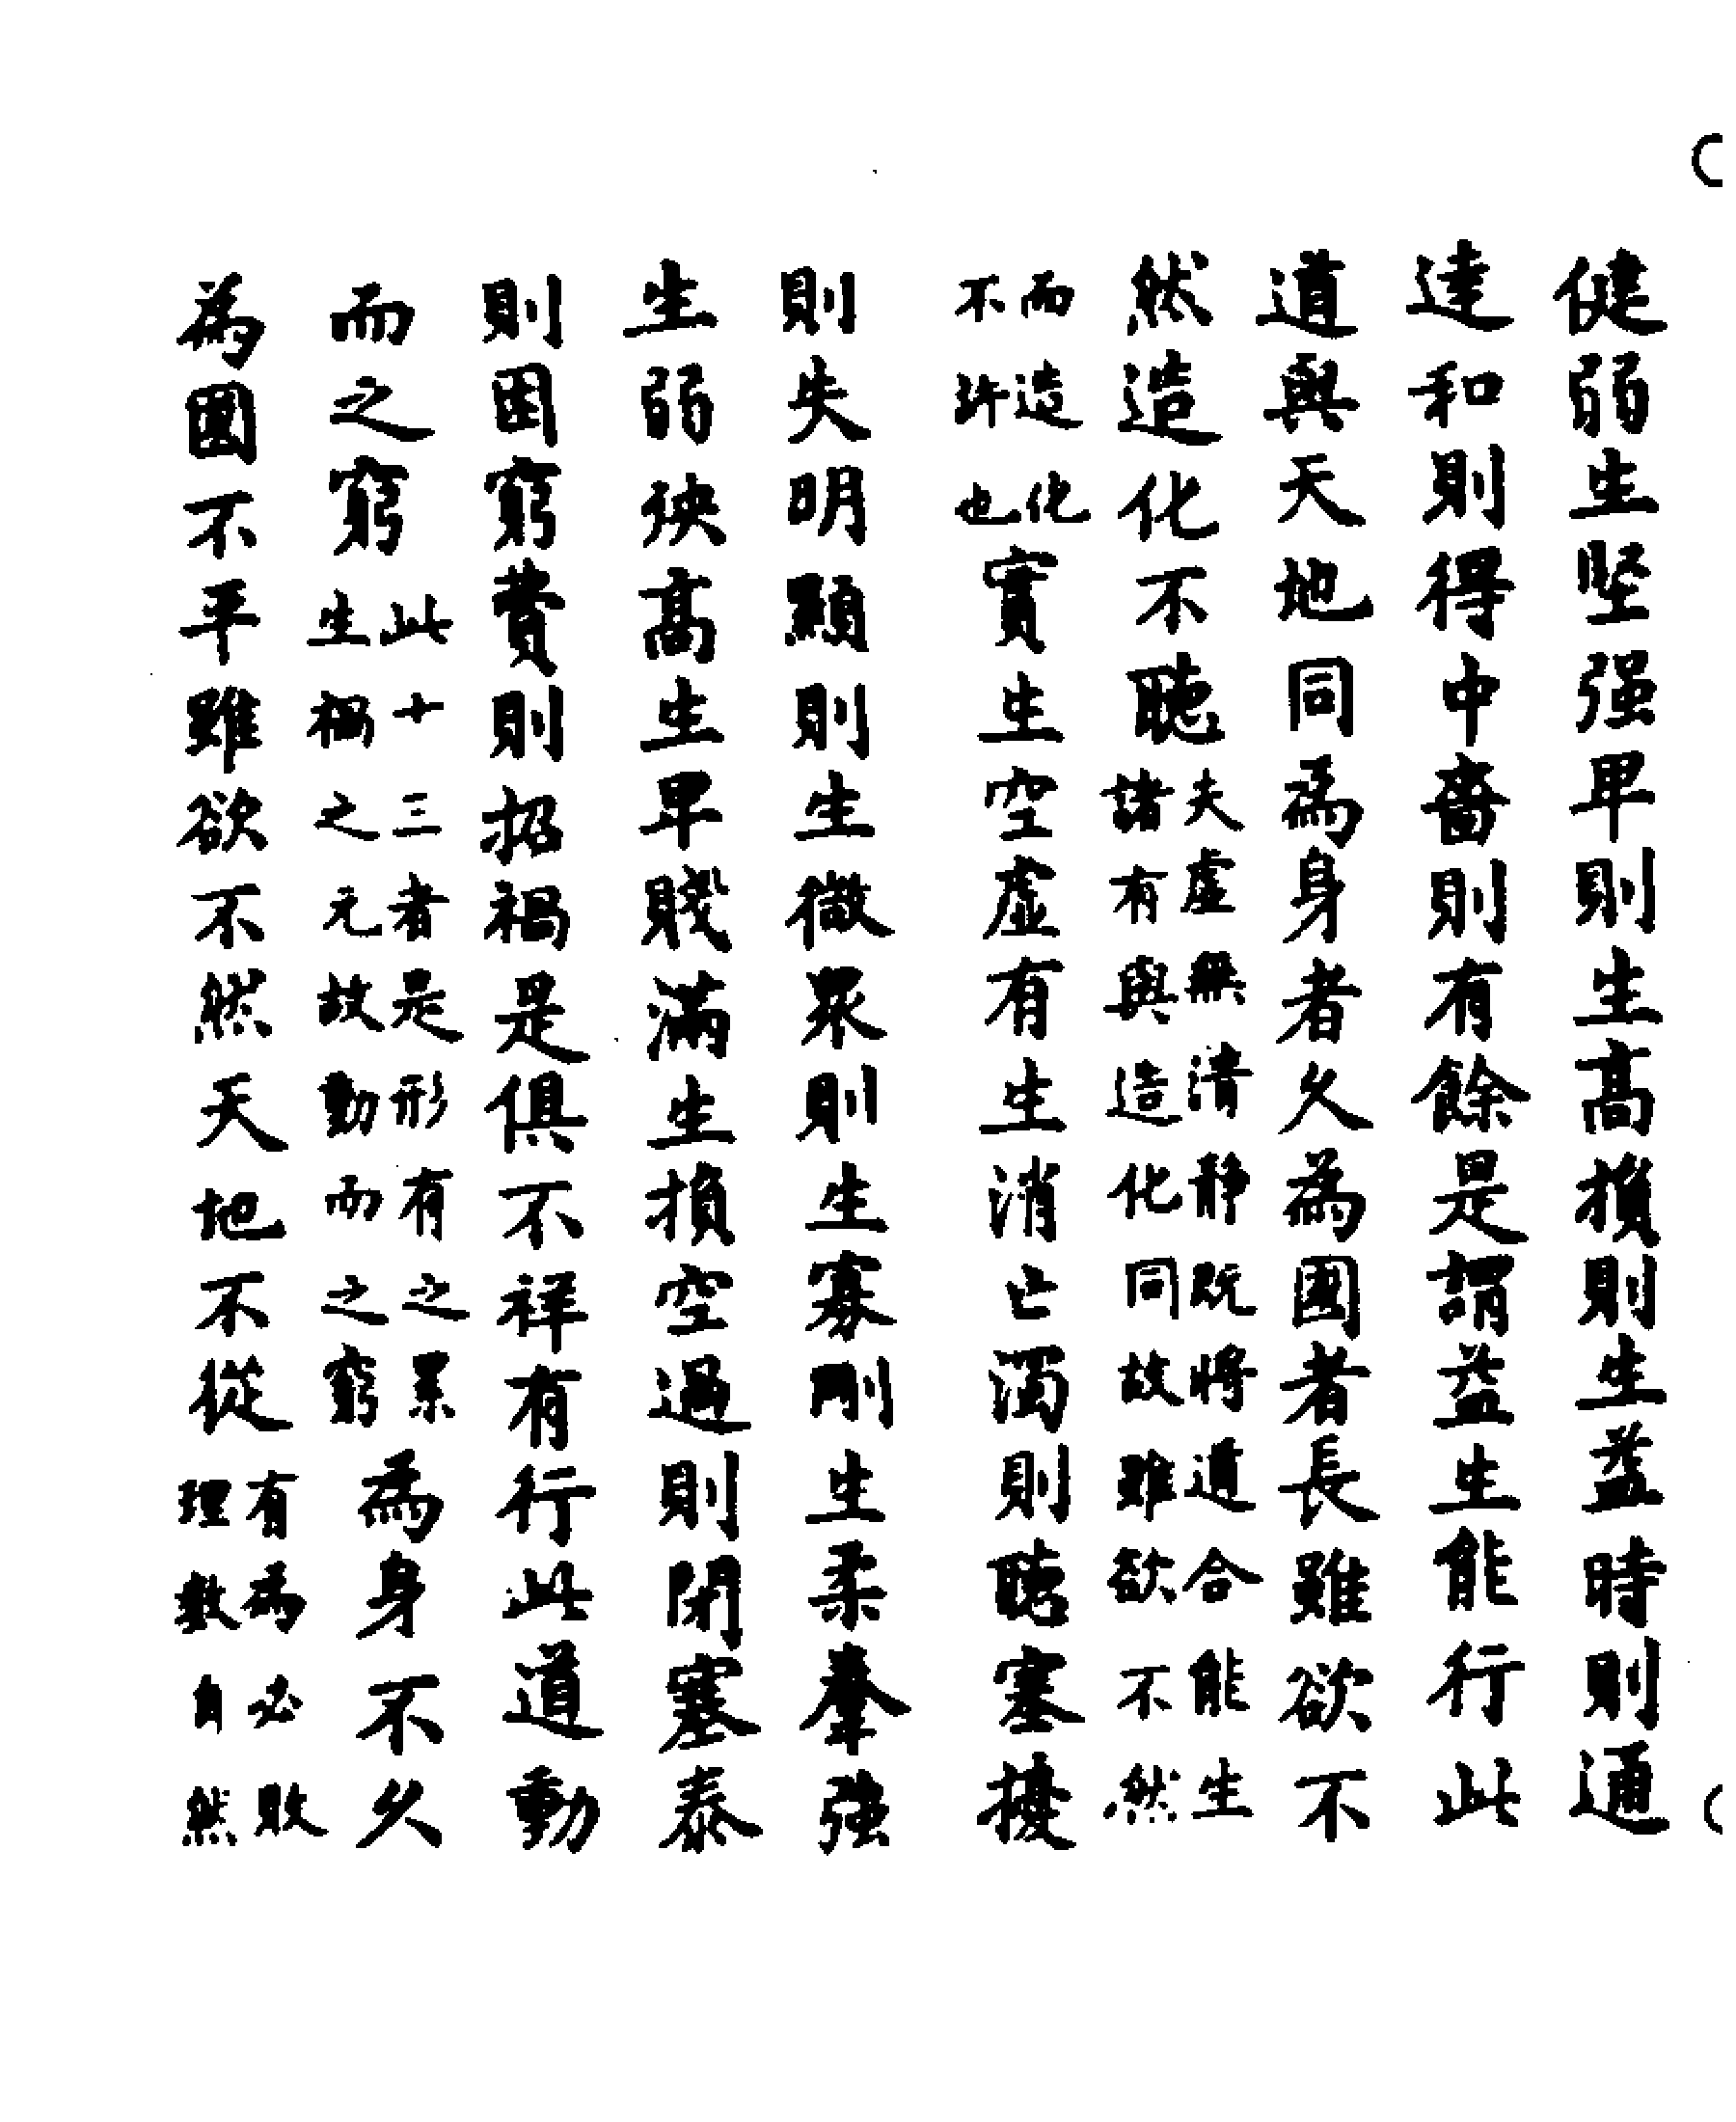 健弱生坚强卑則生高損則生益時則通
達和則得中嗇則有餘是謂益生能行此
道與天地同為身者久為國者長雖欲不
然造化不聽夫虛無清静既將道合能生諸有與造化同故雖欲不然
而造化不許也實生空虛有生消亡濁則聴塞擾
則失明顯則生微眾則生寡剛生柔𢍆強
生弱殃高生卑賤滿生損空過則閉塞泰
則困窮費則招禍是俱不祥有行此道動
而之窮此十三者是形有之累生禍之元故動而之窮為身不久
為國不平雖欲不然天地不從有為必敗理數自然